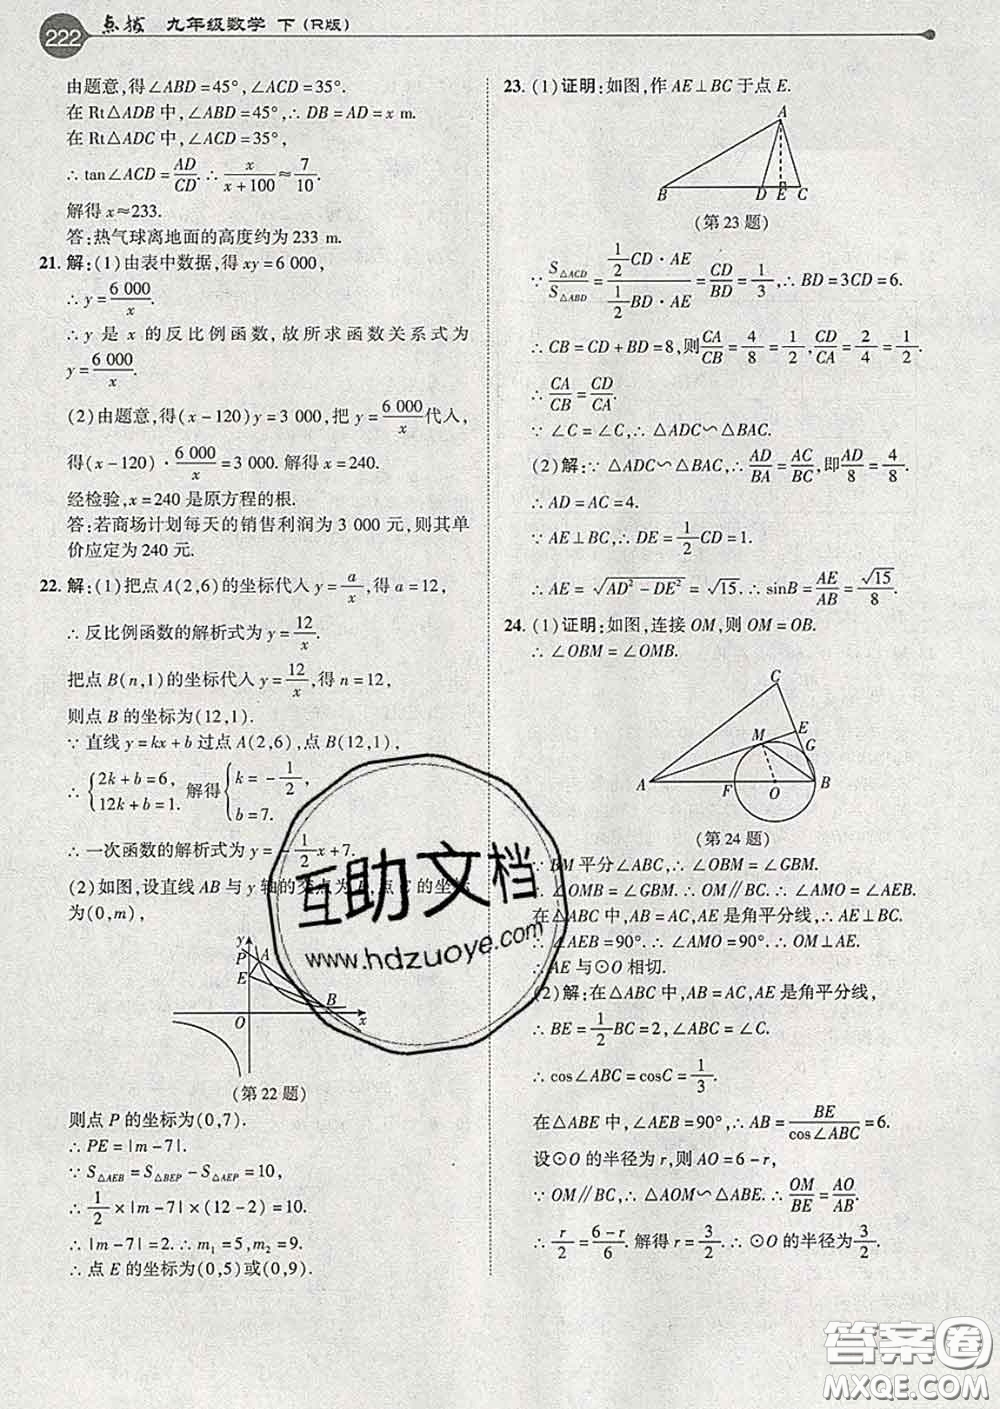 222 点拨 九年级数学 下 (R版)
由题意,得∠ABD=45°,∠ACD=35°.
在 Rt△ADB 中,∠ABD=45°,∴DB=AD=x m.
在 Rt△ADC 中,∠ACD=35°,
∴tan∠ACD=AD/CD.∴x/(x+100)≈7/10.
解得 x≈233.
答:热气球离地面的高度约为 233 m.
21. 解:(1)由表中数据,得 xy=6 000,
∴y=6 000/x.
∴y 是 x 的反比例函数,故所求函数关系式为
y=6 000/x.
(2)由题意,得(x-120)y=3 000,把 y=6 000/x代入,
得(x-120)·6 000/x=3 000. 解得 x=240.
经检验,x=240 是原方程的根.
答:若商场计划每天的销售利润为 3 000 元,则其单
价应定为 240 元.
22. 解:(1)把点 A(2,6)的坐标代入 y=a/x,得 a=12,
∴反比例函数的解析式为 y=12/x.
把点 B(n,1)的坐标代入 y=12/x,得 n=12,
则点 B 的坐标为(12,1).
∵直线 y=kx+b 过点 A(2,6),点 B(12,1),
∴{2k+b=6, 12k+b=1. 解得{k=-1/2, b=7.
∴一次函数的解析式为 y=-1/2x+7.
(2)如图,设直线 AB 与 y 轴的交点为 P,点 E 的坐标
为(0,m),
y P A E B O x
(第 22 题)
则点 P 的坐标为(0,7).
∴PE=|m-7|.
∵S△AEB=S△BEP-S△AEP=10,
∴1/2×|m-7|×(12-2)=10.
∴|m-7|=2.∴m₁=5,m₂=9.
∴点 E 的坐标为(0,5)或(0,9).
23. (1)证明:如图,作 AE⊥BC 于点 E.
A B D E C
(第 23 题)
∵S△ACD/S△ABD=(1/2CD·AE)/(1/2BD·AE)=CD/BD=1/3,∴BD=3CD=6.
∴CB=CD+BD=8,则CA/CB=4/8=1/2,CD/CA=2/4=1/2.
∴CA/CB=CD/CA.
∵∠C=∠C,∴△ADC∽△BAC.
(2)解:∵△ADC∽△BAC,∴AD/BA=AC/BC,即AD/8=4/8.
∴AD=AC=4.
∵AE⊥BC,∴DE=1/2CD=1.
∴AE=√(AD²-DE²)=√15.∴sinB=AE/AB=√15/8.
24. (1)证明:如图,连接 OM,则 OM=OB.
∴∠OBM=∠OMB.
C E M G A F O B
(第 24 题)
∵BM 平分∠ABC,∴∠OBM=∠GBM.
∴∠OMB=∠GBM.∴OM∥BC.∴∠AMO=∠AEB.
在△ABC 中,AB=AC,AE 是角平分线,∴AE⊥BC.
∴∠AEB=90°.∴∠AMO=90°.∴OM⊥AE.
∴AE 与⊙O 相切.
(2)解:在△ABC 中,AB=AC,AE 是角平分线,
∴BE=1/2BC=2,∠ABC=∠C.
∴cos∠ABC=cosC=1/3.
在△ABE 中,∠AEB=90°,∴AB=BE/cos∠ABC=6.
设⊙O 的半径为 r,则 AO=6-r,
∵OM∥BC,∴△AOM∽△ABE.∴OM/BE=AO/AB.
∴r/2=(6-r)/6. 解得 r=3/2.∴⊙O 的半径为3/2.
互助文档
www.hdzuoye.com
答案卷
MXQE.COM